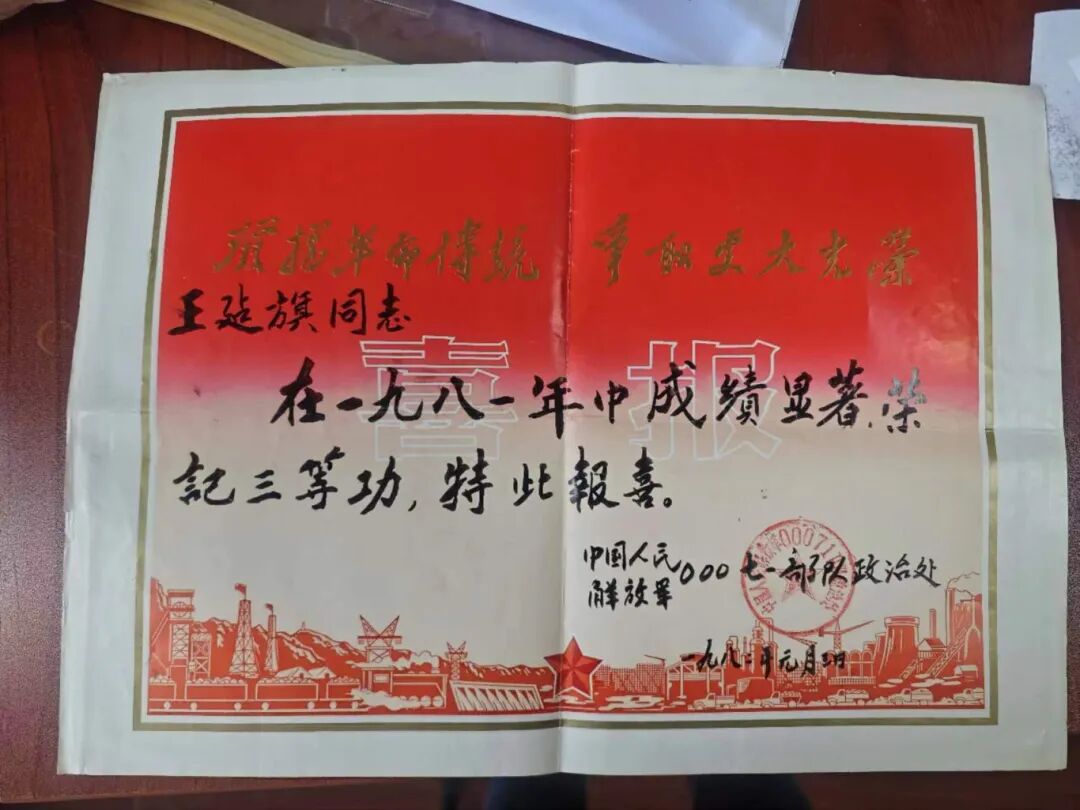 发扬革命传统 争取更大光荣
王延旗同志
喜报
在一九八一年中成績显著,荣
記三等功,特此報喜。
中国人民
解放军
000七一部队政治处
00071
一九八二年元月三日